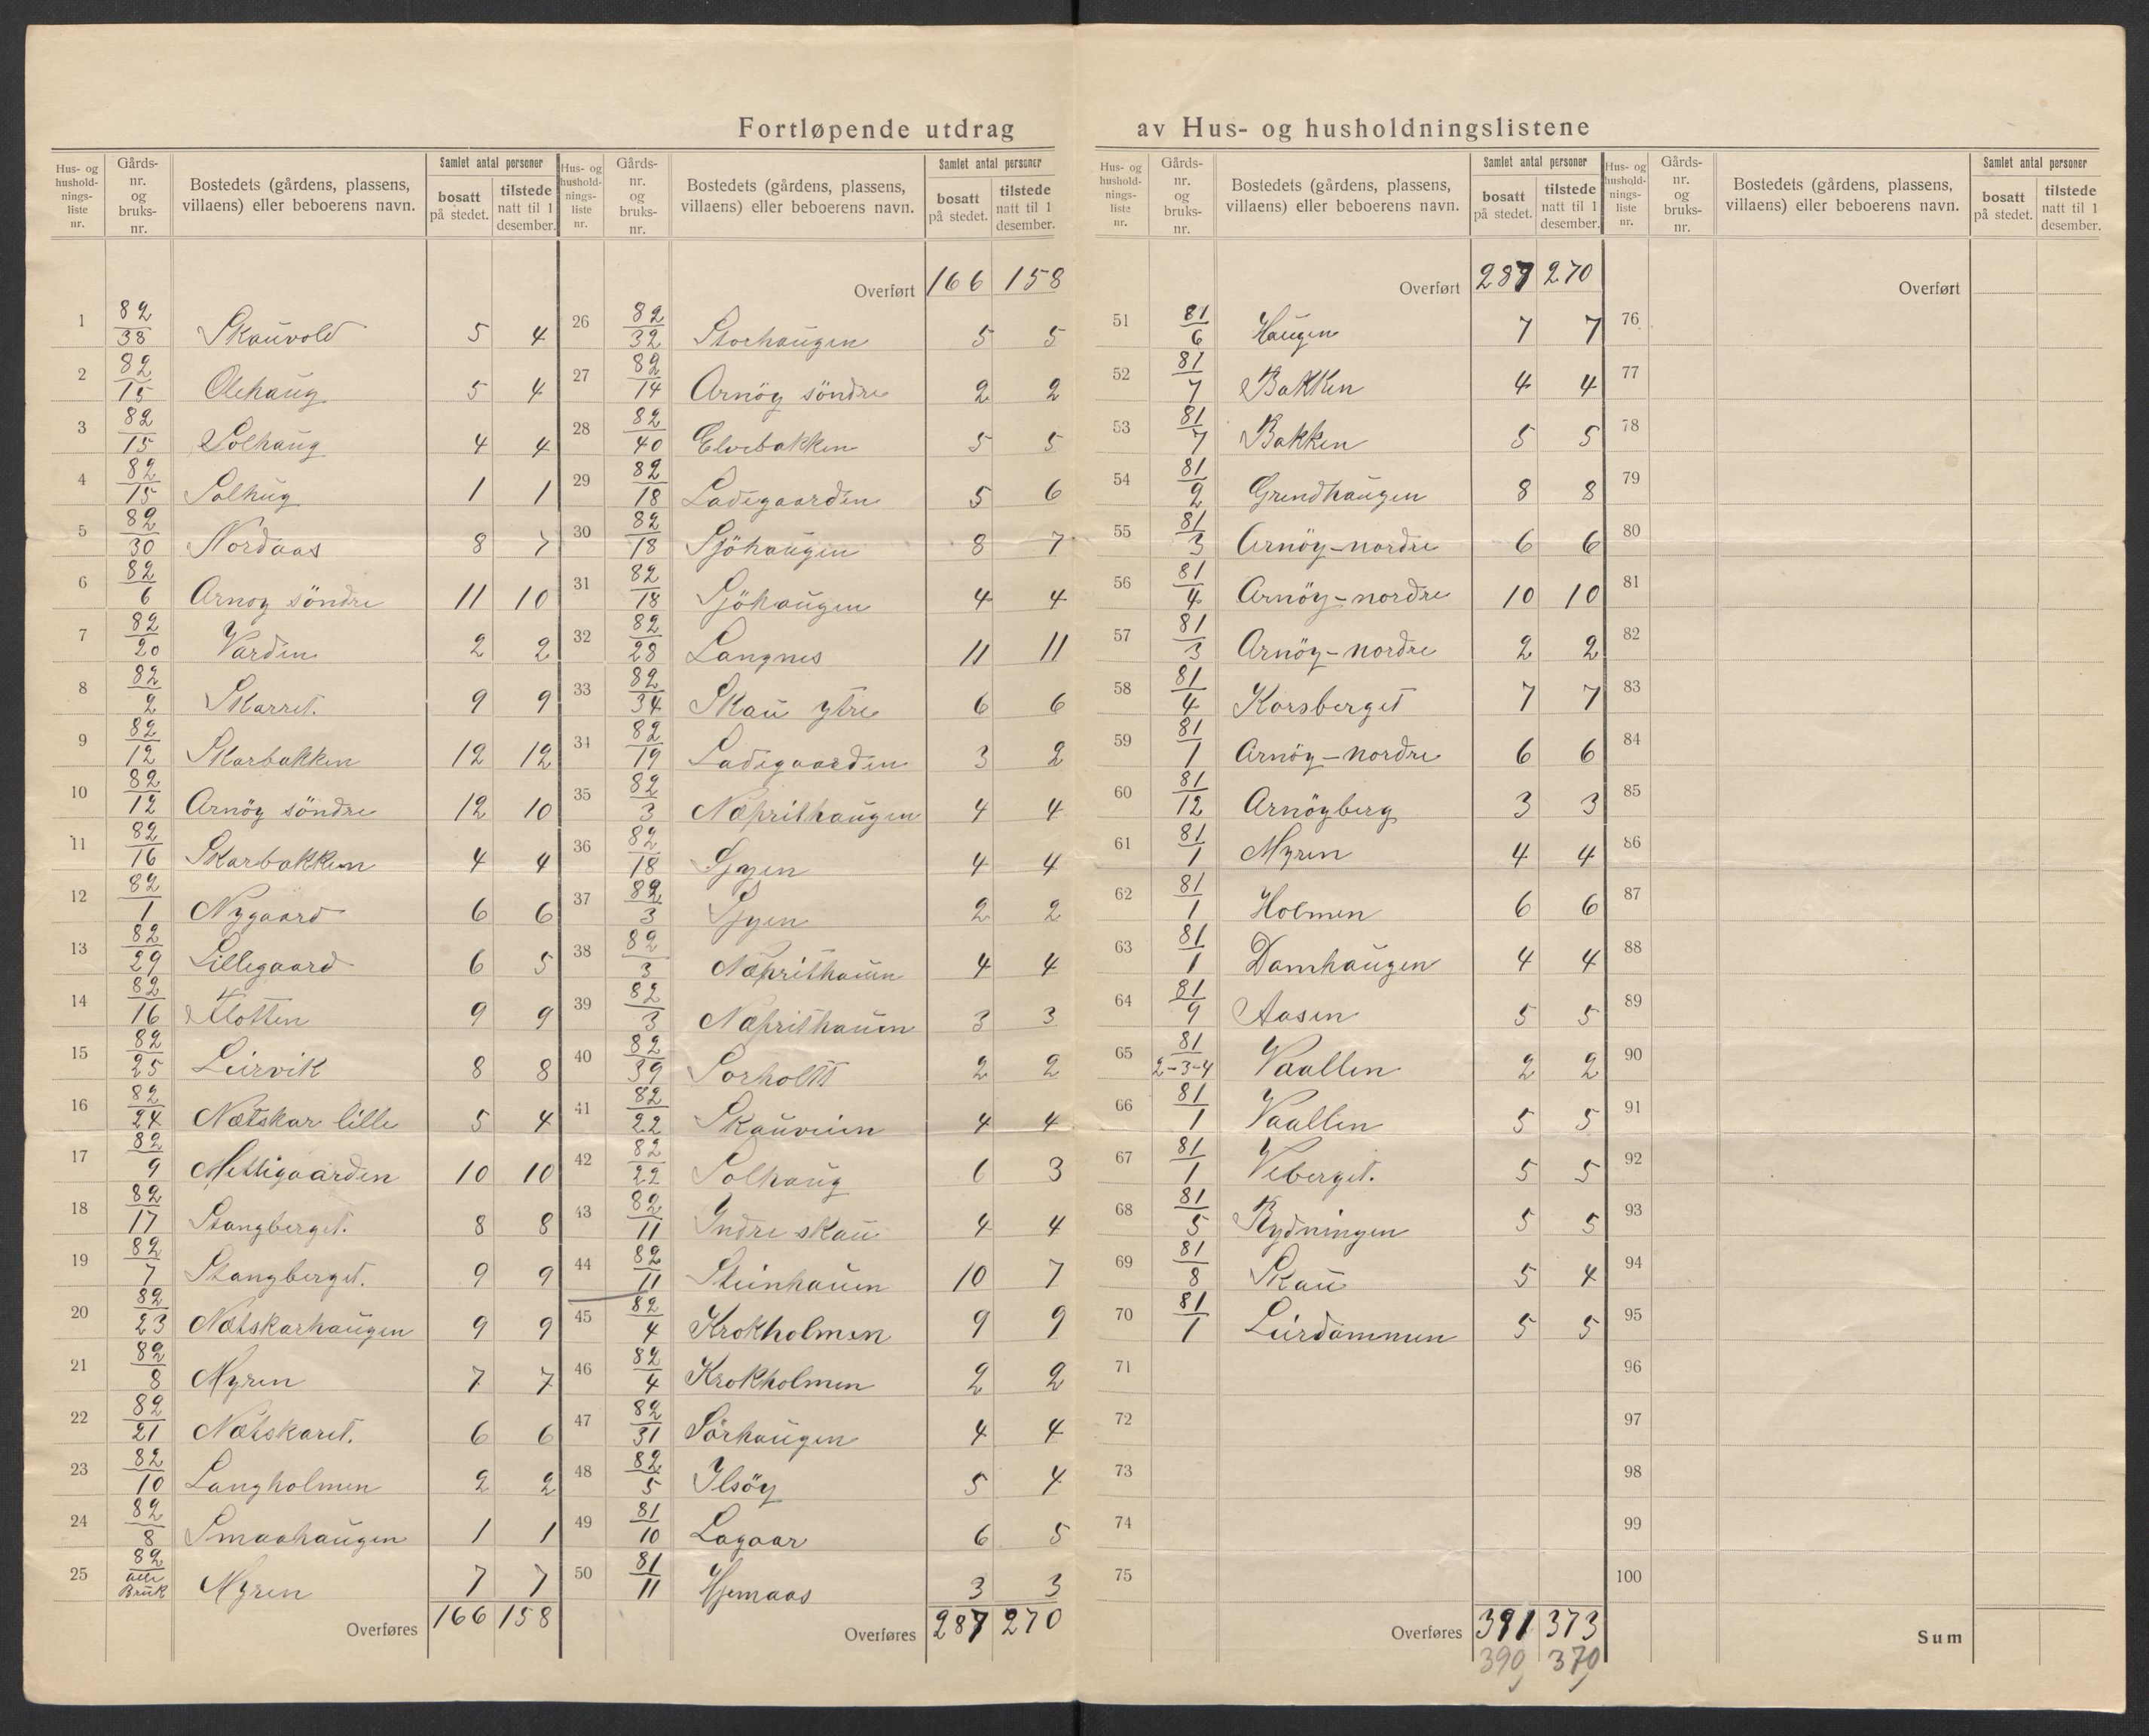 Fortløpende utdrag av Hus- og husholdningslistene
Hus- og hushold-nings-liste nr. | Gårds-nr. og bruks-nr. | Bostedets (gårdens, plassens, villaens) eller beboerens navn. | Samlet antal personer | bosatt på stedet. | tilstede natt til 1 desember.
1 82/38 Skauvold 5 4
2 82/15 Olehaug 5 4
3 82/15 Solhaug 4 4
4 82/15 Solhug 1 1
5 82/30 Nordaas 8 7
6 82/6 Arnoy söndre 11 10
7 82/20 Varden 2 2
8 82/2 Skarret. 9 9
9 82/12 Skarbakken 12 12
10 82/12 Arnöy söndre 12 10
11 82/16 Skarbakken 4 4
12 82/1 Nygaard 6 6
13 82/29 Lillegaard 6 5
14 82/16 Flotten 9 9
15 82/25 Leirvik 8 8
16 82/24 Nætskar lille 5 4
17 82/9 Mettigaarden 10 10
18 82/17 Stangberget. 8 8
19 82/7 Stangberget. 9 9
20 82/23 Nætskarhaugen 9 9
21 82/8 Myren 7 7
22 82/21 Nætskaret. 6 6
23 82/10 Langholmen 2 2
24 82/8 Smaahaugen 1 1
25 82/alle Bruk Myren 7 7
Overføres 166 158
Hus- og hushold-nings-liste nr. | Gårds-nr. og bruks-nr. | Bostedets (gårdens, plassens, villaens) eller beboerens navn. | Samlet antal personer | bosatt på stedet. | tilstede natt til 1 desember.
Overført 166 158
26 82/32 Storhaugen 5 5
27 82/14 Arnöy söndre 2 2
28 82/40 Elvebakken 5 5
29 82/18 Ladegaarden 5 6
30 82/18 Sjöhaugen 8 7
31 82/18 Sjöhaugen 4 4
32 82/28 Langnes 11 11
33 82/34 Skau ytre 6 6
34 82/19 Ladegaarden 3 2
35 82/3 Næprithaugen 4 4
36 82/18 Sjyen 4 4
37 82/3 Sjyen 2 2
38 82/3 Næprithauen 4 4
39 82/3 Næprithauen 3 3
40 82/39 Sorholtt 2 2
41 82/22 Skauveien 4 4
42 82/22 Solhaug 6 3
43 82/11 Indre skau 4 4
44 82/11 Steinhauen 10 7
45 82/4 Krokholmen 9 9
46 82/4 Krokholmen 2 2
47 82/31 Sörhaugen 4 4
48 82/5 Ilsöy 5 4
49 81/10 Lagaar 6 5
50 81/11 Hjemaas 3 3
Overføres 287 270
Hus- og hushold-nings-liste nr. | Gårds-nr. og bruks-nr. | Bostedets (gårdens, plassens, villaens) eller beboerens navn. | Samlet antal personer | bosatt på stedet. | tilstede natt til 1 desember.
Overført 287 270
51 81/6 Haugen 7 7
52 81/7 Bakken 4 4
53 81/7 Bakken 5 5
54 81/2 Grendhaugen 8 8
55 81/3 Arnöy-nordre 6 6
56 81/4 Arnöy-nordre 10 10
57 81/3 Arnöy-nordre 2 2
58 81/4 Korsberget 7 7
59 81/1 Arnöy-nordre 6 6
60 81/12 Arnöyberg 3 3
61 81/1 Myren 4 4
62 81/1 Holmen 6 6
63 81/1 Damhaugen 4 4
64 81/9 Aasen 5 5
65 81/2-3-4 Vaallen 2 2
66 81/1 Vaallen 5 5
67 81/1 Veberget. 5 5
68 81/5 Rydningen 5 5
69 81/8 Skau 5 4
70 81/1 Leirdammen 5 5
71
72
73
74
75
Overføres 391 373
390 370
Hus- og hushold-nings-liste nr. | Gårds-nr. og bruks-nr. | Bostedets (gårdens, plassens, villaens) eller beboerens navn. | Samlet antal personer | bosatt på stedet. | tilstede natt til 1 desember.
Overført
76
77
78
79
80
81
82
83
84
85
86
87
88
89
90
91
92
93
94
95
96
97
98
99
100
Sum